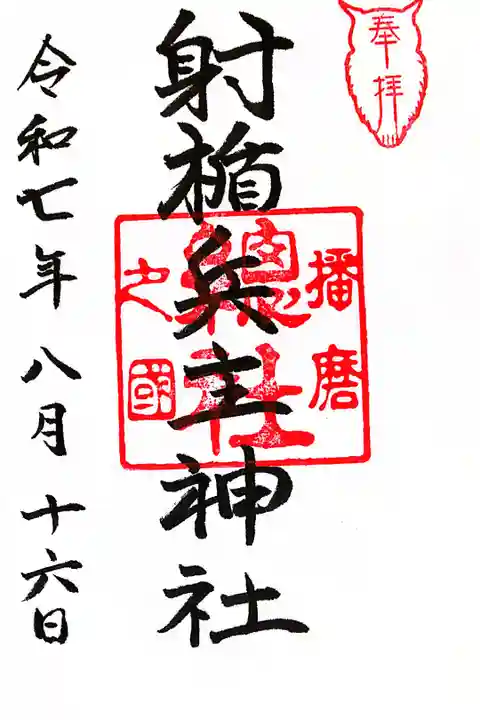 奉拝
射楯兵主神社
播磨
総社
之國
令和七年八月十六日